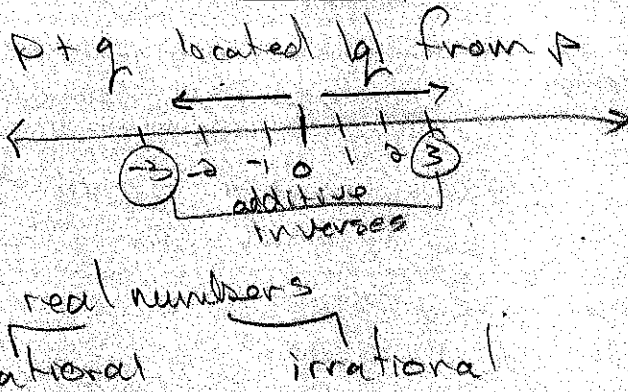 p + q located |q| from p
-3 -2 -1 0 1 2 3
additive
inverses
real numbers
rational irrational